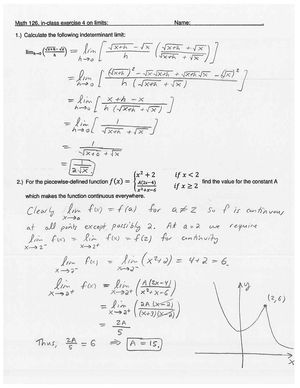 Math 126, in-class exercise 4 on limits: Name:
1.) Calculate the following indeterminant limit:
lim h→0 (√(x+h) − √x / h) = lim h→0 [ (√(x+h) − √x)/h · (√(x+h) + √x)/(√(x+h) + √x) ]
= lim h→0 [ ((√(x+h))² − √x√(x+h) + √x√(x+h) − (√x)²) / (h(√(x+h) + √x)) ]
= lim h→0 [ (x+h−x) / (h(√(x+h) + √x)) ]
= lim h→0 [ 1 / (√(x+h) + √x) ]
= 1 / (√(x+0) + √x)
= 1 / (2√x)
2.) For the piecewise-defined function f(x) = { x² + 2 if x < 2
A(2x−4) / (x²+x−6) if x ≥ 2 find the value for the constant A
which makes the function continuous everywhere.
Clearly lim x→a f(x) = f(a) for a ≠ 2 so f is continuous
at all points except possibly 2. At a = 2 we require
lim x→2⁻ f(x) = lim x→2⁺ f(x) = f(2) for continuity
lim x→2⁻ f(x) = lim x→2⁻ (x²+2) = 4+2 = 6.
lim x→2⁺ f(x) = lim x→2⁺ ( A(2x−4) / (x²+x−6) )
= lim x→2⁺ ( 2A(x−2) / ((x+3)(x−2)) )
= 2A / 5
Thus, 2A/5 = 6 ⇒ A = 15.
y
(2,6)
x